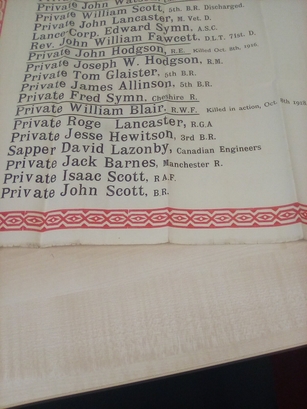 Private John
Private William Scott, 5th. B.R. Discharged.
Private John Lancaster, M. Vet. D.
Lance-Corp. Edward Symn, A.S.C.
Rev. John William Fawcett, D.L.T. 71st. D.
Private John Hodgson, R.E. Killed Oct. 8th, 1916.
Private Joseph W. Hodgson, R.M.
Private Tom Glaister, 5th B.R.
Private James Allinson, 5th B.R.
Private Fred Symn, Cheshire R.
Private William Blair, R.W.F. Killed in action, Oct. 8th 1918
Private Roge Lancaster, R.G.A
Private Jesse Hewitson, 3rd B.R.
Sapper David Lazonby, Canadian Engineers
Private Jack Barnes, Manchester R.
Private Isaac Scott, R A F.
Private John Scott, B.R.